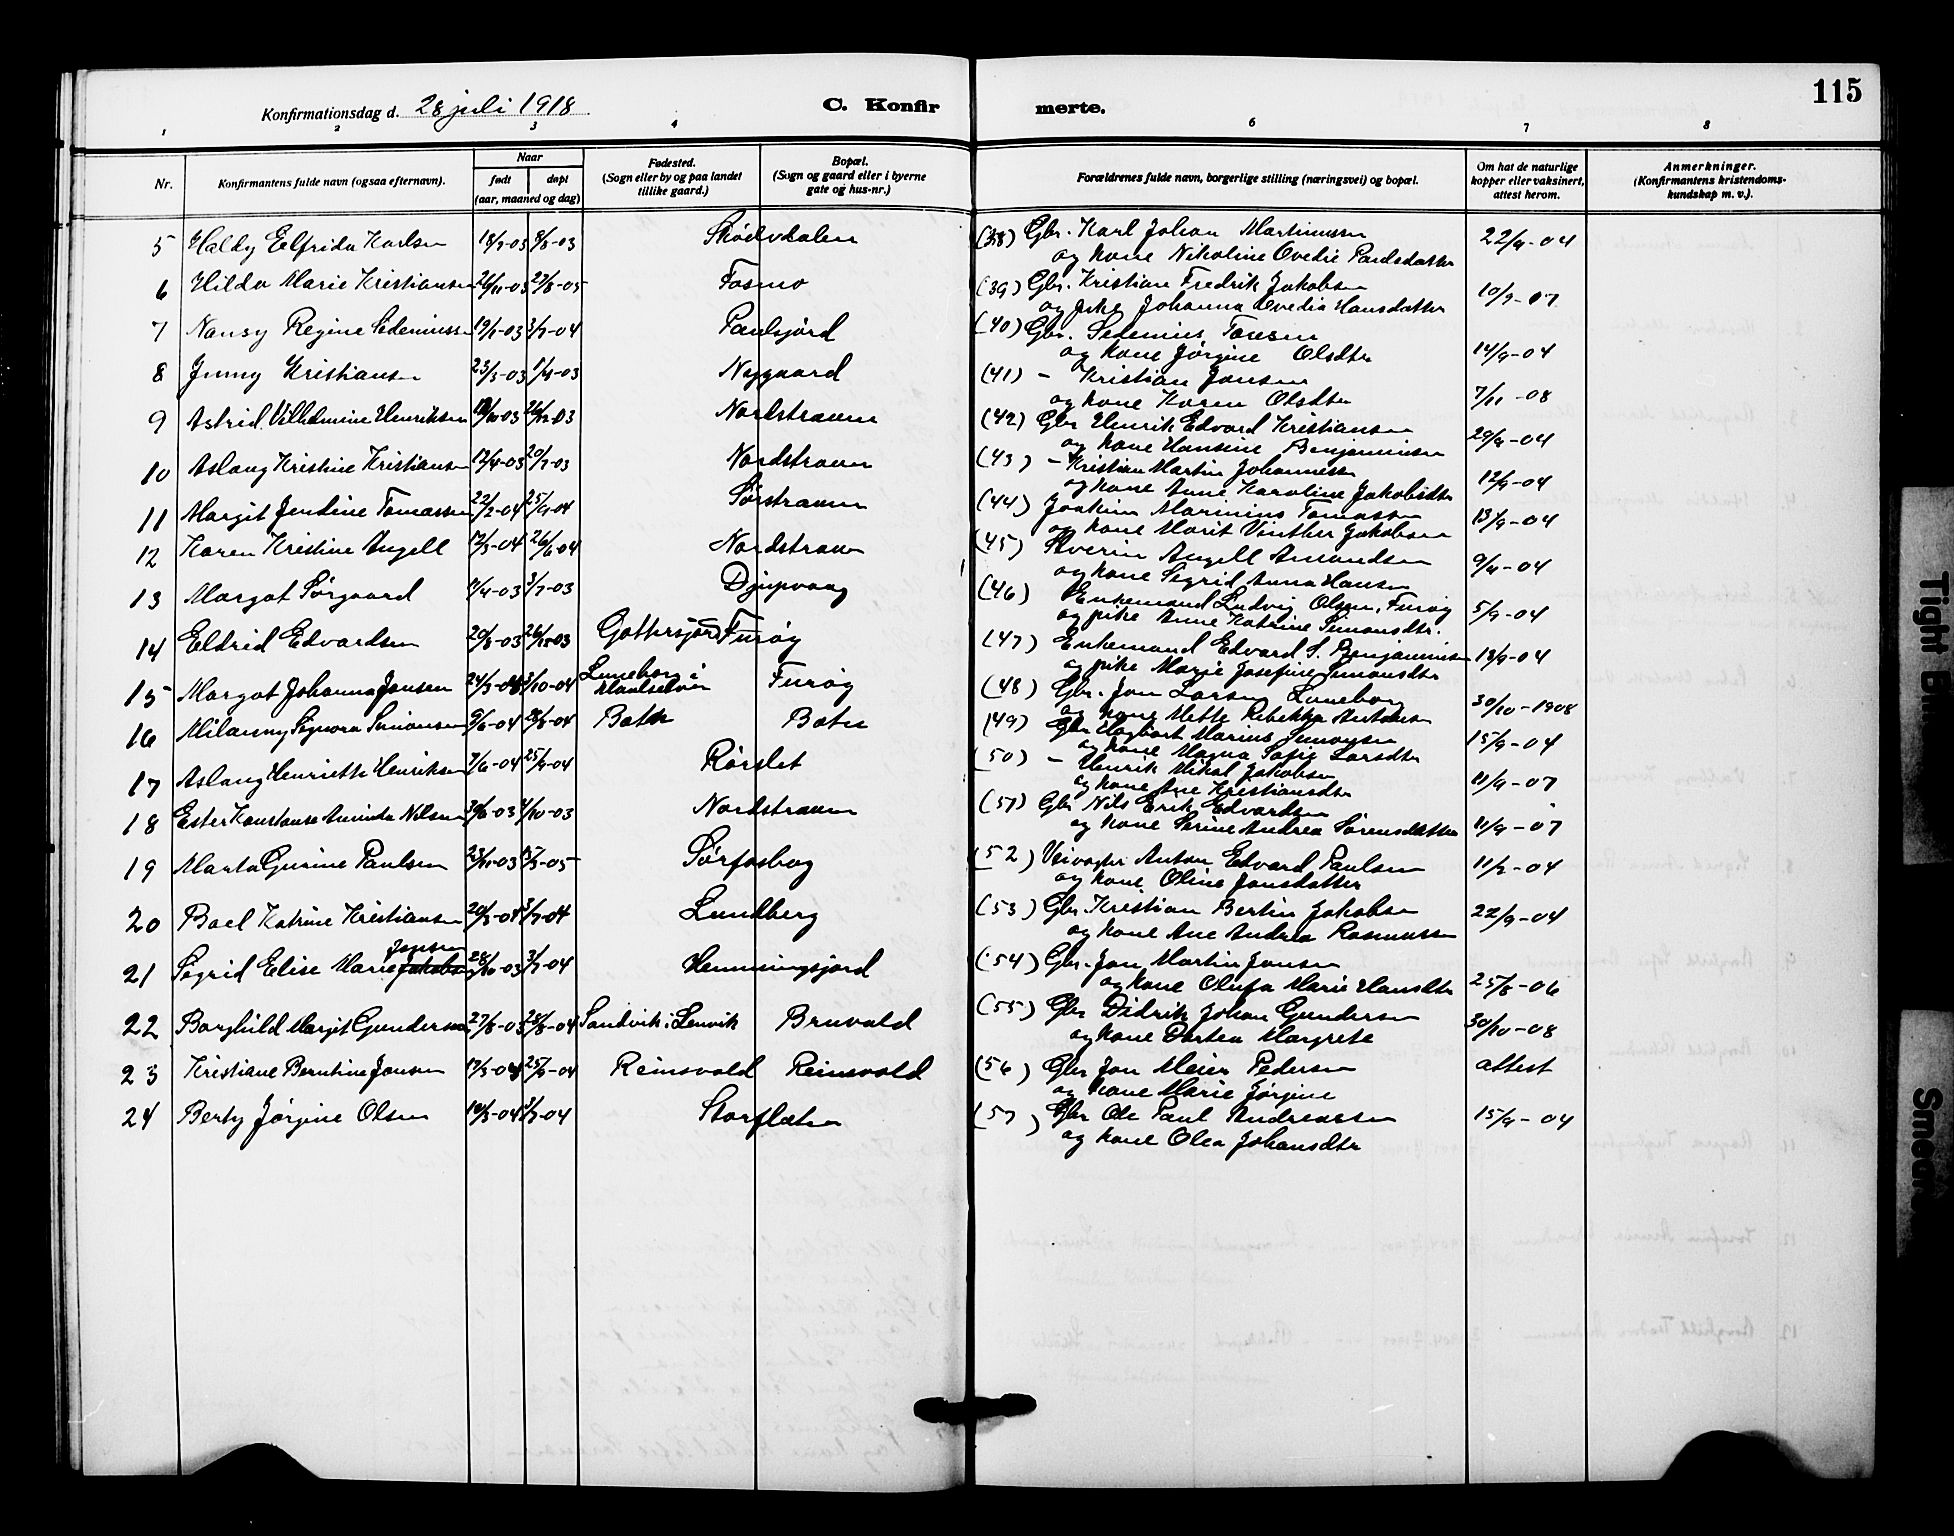 115
Konfirmationsdag d. 28 juli 1918
C. Konfirmerte.
1 2 3 4 6 7 8
Nr.
Konfirmantens fulde navn (ogsaa efternavn).
Naar
født
døpt
(aar, maaned og dag)
Fødested.
(Sogn eller by og paa landet
tillike gaard.)
Bopæl.
(Sogn og gaard eller i byerne
gate og hus-nr.)
Forældrenes fulde navn, borgerlige stilling (næringsvei) og bopæl.
Om hat de naturlige
kopper eller vaksinert,
attest herom.
Anmerkninger.
(Konfirmantens kristendoms-
kundskap m. v.).
5 Haldy Elfrida Karlsen 18/7-03 8/8-03 (38) Gbr. Karl Johan Martinussen 22/9-04
og kone Nikoline Ovedie Paulsdatter
6 Hilda Marie Kristiansen 26/11-03 27/8-05 Fosmo (39) Gbr. Kristian Fredrik Jakobsen 10/9-07
og pike Johanna Ovedia Hansdatter
7 Nansy Regine Sedeniussen 19/1-03 3/7-04 Paulsjord (40) Gbr. Sedenius Toresen
og kone Jørgine Olsdtr 14/9-04
8 Jenny Kristiansen 23/3-03 1/4-03 Nygaard (41) - Kristian Jansen
og kone Karen Olsdtr 7/11-08
9 Astrid Vilhelmine Henriksen 26/12-03 Nordstraum (42) Gbr Henrik Edvard Kristiansen
og kone Hansine Benjaminsen 20/9-04
10 Aslaug Kristine Kristiansen 12/4-03 20/7-03 Nordstraum (43) - Kristian Martin Johannessen
og kone Anne Karoline Jakobsdtr 12/9-04
11 Margit Jendine Tomassen 22/2-04 25/9-04 Sørstraum (44) Joakim Marinius Tomassen
og kone Marit Vinther Jakobsen 13/9-04
12 Karen Kristine Angell 12/3-04 26/6-04 Nordstraum (45) Severin Angell Amundsen
og kone Sigrid Anna Hansen 9/9-04
13 Margot Sørgaard 11/4-03 3/7-03 Djupvaag (46) Enkemand Ludvig Olsen, Furøy
og pike Anne Katrine Simonsdtr. 5/9-04
14 Eldrid Edvardsen 20/8-03 26/12-03 Gottersjord Furøy (47) Enkemand Edvard S. Benjaminsen 13/9-04
og pike Marie Josefine Simonsdtr
15 Margot Johanna Jansen 24/3-04 3/10-04 Luneborg i
Maalselven Furøy (48) Gbr. Jon Larsen Luneborg
og kone Mette Rebekka Antonsen 30/10-1908
16 Milanny Signora Simonsen 9/6-04 28/8-04 Baten Baten (49) Gbr Hagbart Marius Simonsen
og kone Magna Sofie Larsdtr 15/9-04
17 Aslaug Henriette Henriksen 7/6-04 25/9-04 Rørslet (50) - Henrik Mikal Jakobsen
og kone Ane Kristiansdtr 11/9-07
18 Ester Konstanse Aminda Nilsen 30/6-03 4/10-03 Nordstraum (51) Gbr Nils Erik Edvardsen
og kone Serine Andrea Sørensdatter 11/9-07
19 Marta Gurine Paulsen 23/11-03 Sørfosbog (52) Veivogter Anton Edvard Paulsen 11/2-04
og kone Oline Jonsdatter
20 Bael Katrine Kristiansen 20/3-04 3/7-04 Lundberg (53) Gbr. Kristian Bertin Jakobsen 22/9-04
og kone Ane Andrea Rasmussen
Jansen
21 Sigrid Elise Marie Jakobsen 28/10-03 3/7-04 Henningsjord (54) Gbr. Jon Martin Jonsen
og kone Olufa Marie Hansdtr 25/8-06
22 Borghild Margit Gundersen 27/8-03 28/8-04 Sandvik i Lenvik Bruvold (55) Gbr Didrik Johan Gundersen
og kone Dortea Margrete 30/10-08
23 Kristiane Berntine Jonsen 19/3-04 25/9-04 Reinsvold Reinsvold (56) Gbr Jon Meier Pedersen attest
og kone Marie Jørgine
24 Berty Jørgine Olsen 10/3-04 3/7-04 Storflaten (57) Gbr Ole Paul Andreassen 15/9-04
og kone Olea Johansdtr
Tight
Smear